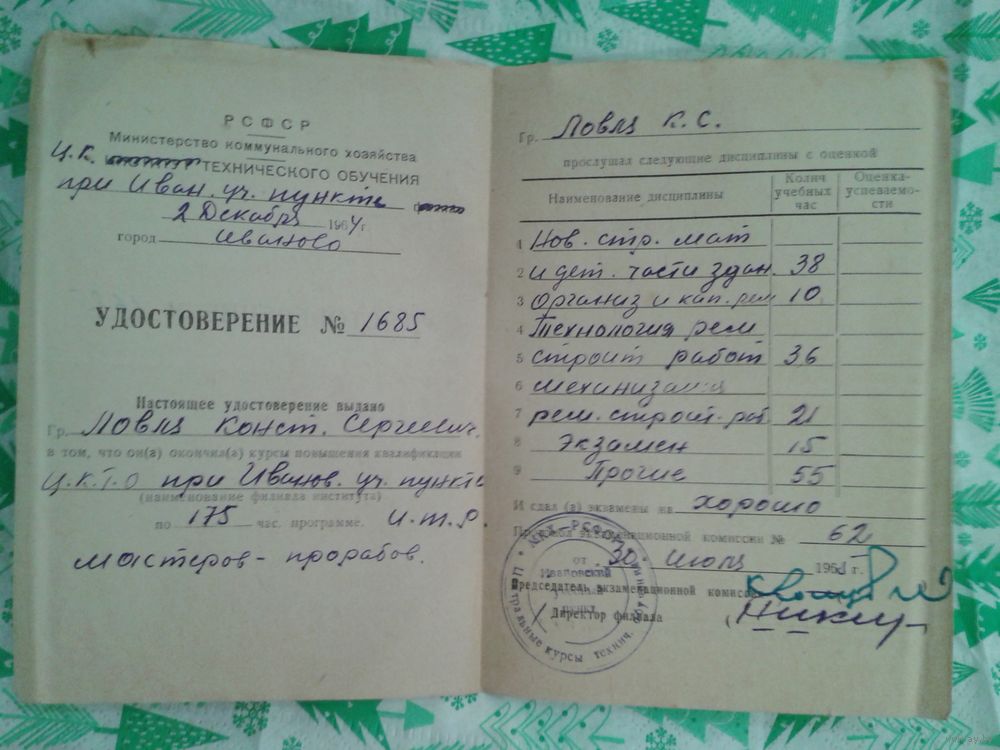 РСФСР
Министерство коммунального хозяйства
Ц.К. ТЕХНИЧЕСКОГО ОБУЧЕНИЯ
при Иван. уч. пункте
2 Декабря 1964 г.
город Иваново
УДОСТОВЕРЕНИЕ № 1685
Настоящее удостоверение выдано
Гр. Ловля Конст. Сергеевич
в том, что он(а) окончил(а) курсы повышения квалификации
Ц.К.Т.О при Иванов. уч. пункте
(наименование филиала института)
по 175 час. программе. И.Т.Р.
мастеров - прорабов.
Гр. Ловля К.С.
прослушал следующие дисциплины с оценкой
Наименование дисциплины
Колич учебных час
Оценка-успеваемости
1 Нов. стр. мат
2 и дет. части здан. 38
3 Организ и кап. рем 10
4 Технология рем
5 строит работ 36
6 механизация
7 рем. строит. раб 21
8 Экзамен 15
9 Прочие 55
И сдал (а) экзамены на хорошо
Протокол экзаменационной комиссии № 62
от 30 июля 196 г.
Председатель экзаменационной комиссии
Директор филиала
МКХ-РСФСР
Центральные курсы технич.
Ивановский
учебный
пункт